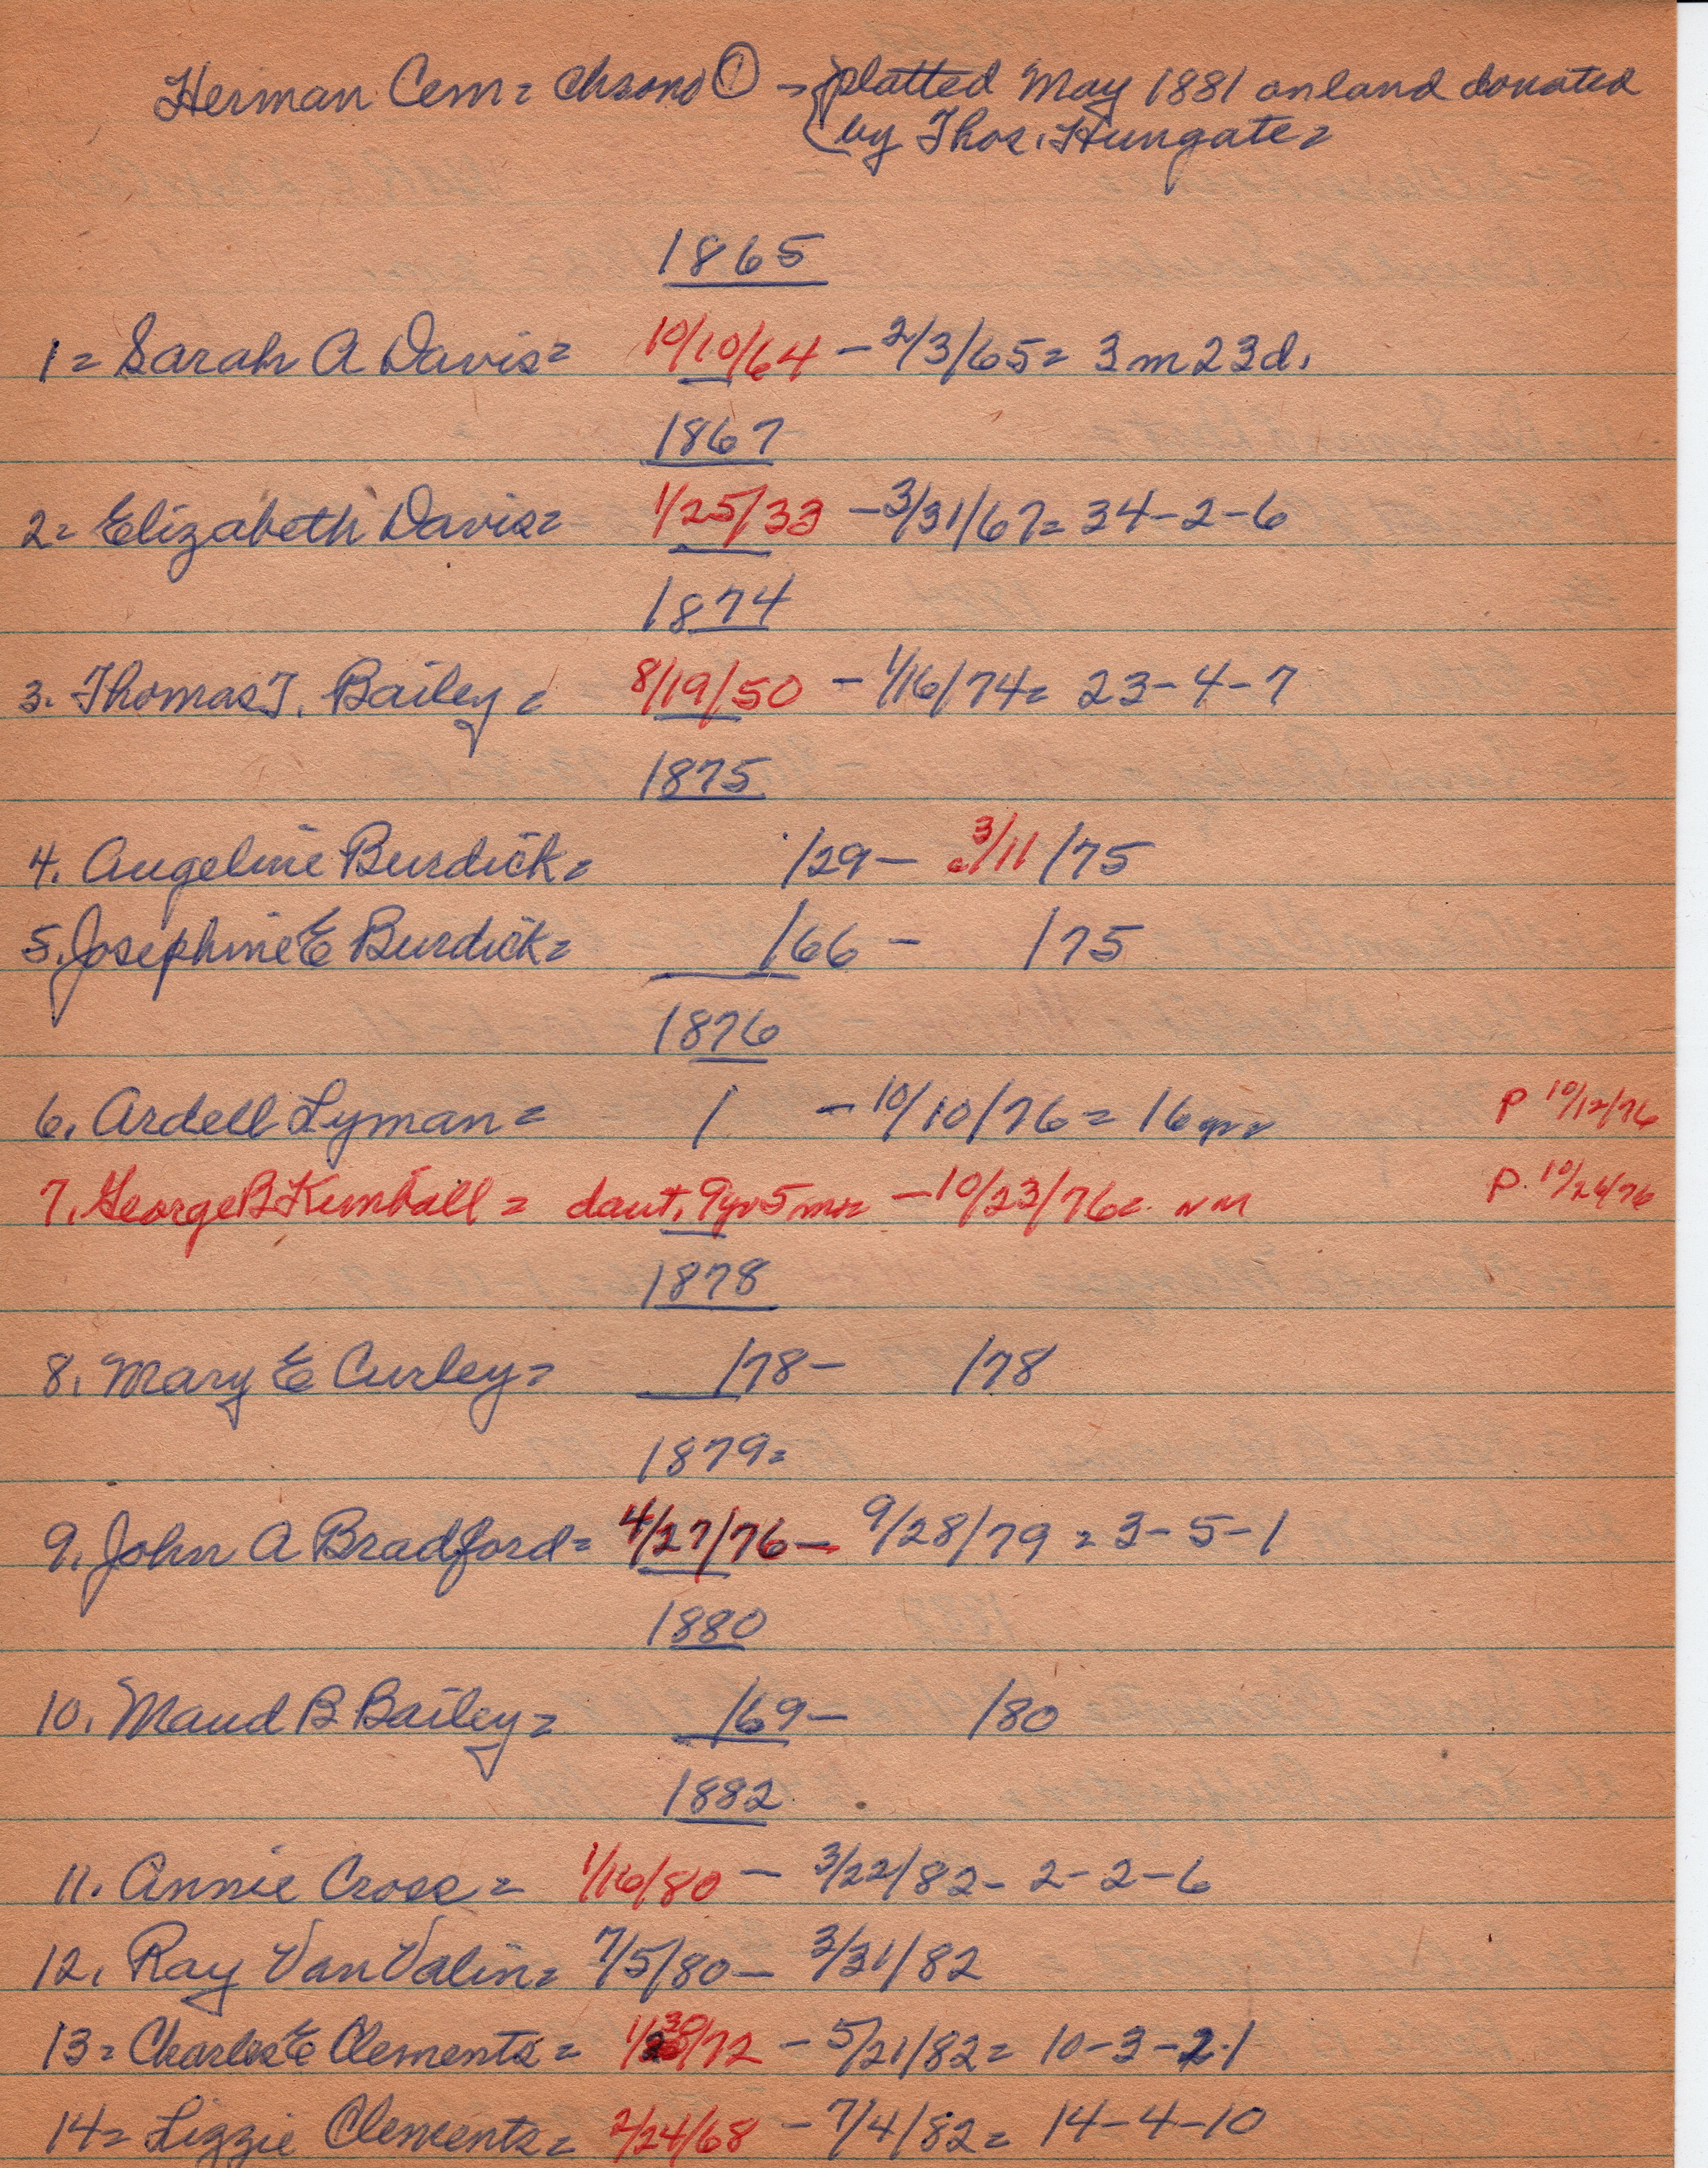 Herman Cem = Chrono ① - { platted May 1881 on land donated
by Thos. Hungate =
1865
1 = Sarah A Davis = 10/10/64 - 2/3/65 = 3m 23d.
1867
2 = Elizabeth Davis = 1/25/33 - 3/31/67 = 34-2-6
1874
3. Thomas J. Bailey = 8/19/50 - 1/16/74 = 23-4-7
1875
4. Angeline Burdick = /29 - 3/11/75
5. Josephine E Burdick = /66 - /75
1876
6. Ardell Lyman = / - 10/10/76 = 16 yrs P 10/12/76
7. George B Kimball = daut. 9yr 5mo = - 10/23/76 = NM P. 10/26/76
1878
8. Mary E Curley = /78 - /78
1879 =
9. John A Bradford = 4/27/76 - 9/28/79 = 3-5-1
1880
10. Maud B Bailey = /69 - /80
1882
11. Annie Cross = 1/16/80 - 3/22/82 - 2-2-6
12. Ray Van Valin = 7/5/80 - 3/31/82
13 = Charles E Clements = 1/30/72 - 5/21/82 = 10-3-21
14 = Lizzie Clements = 2/24/68 - 7/4/82 = 14-4-10